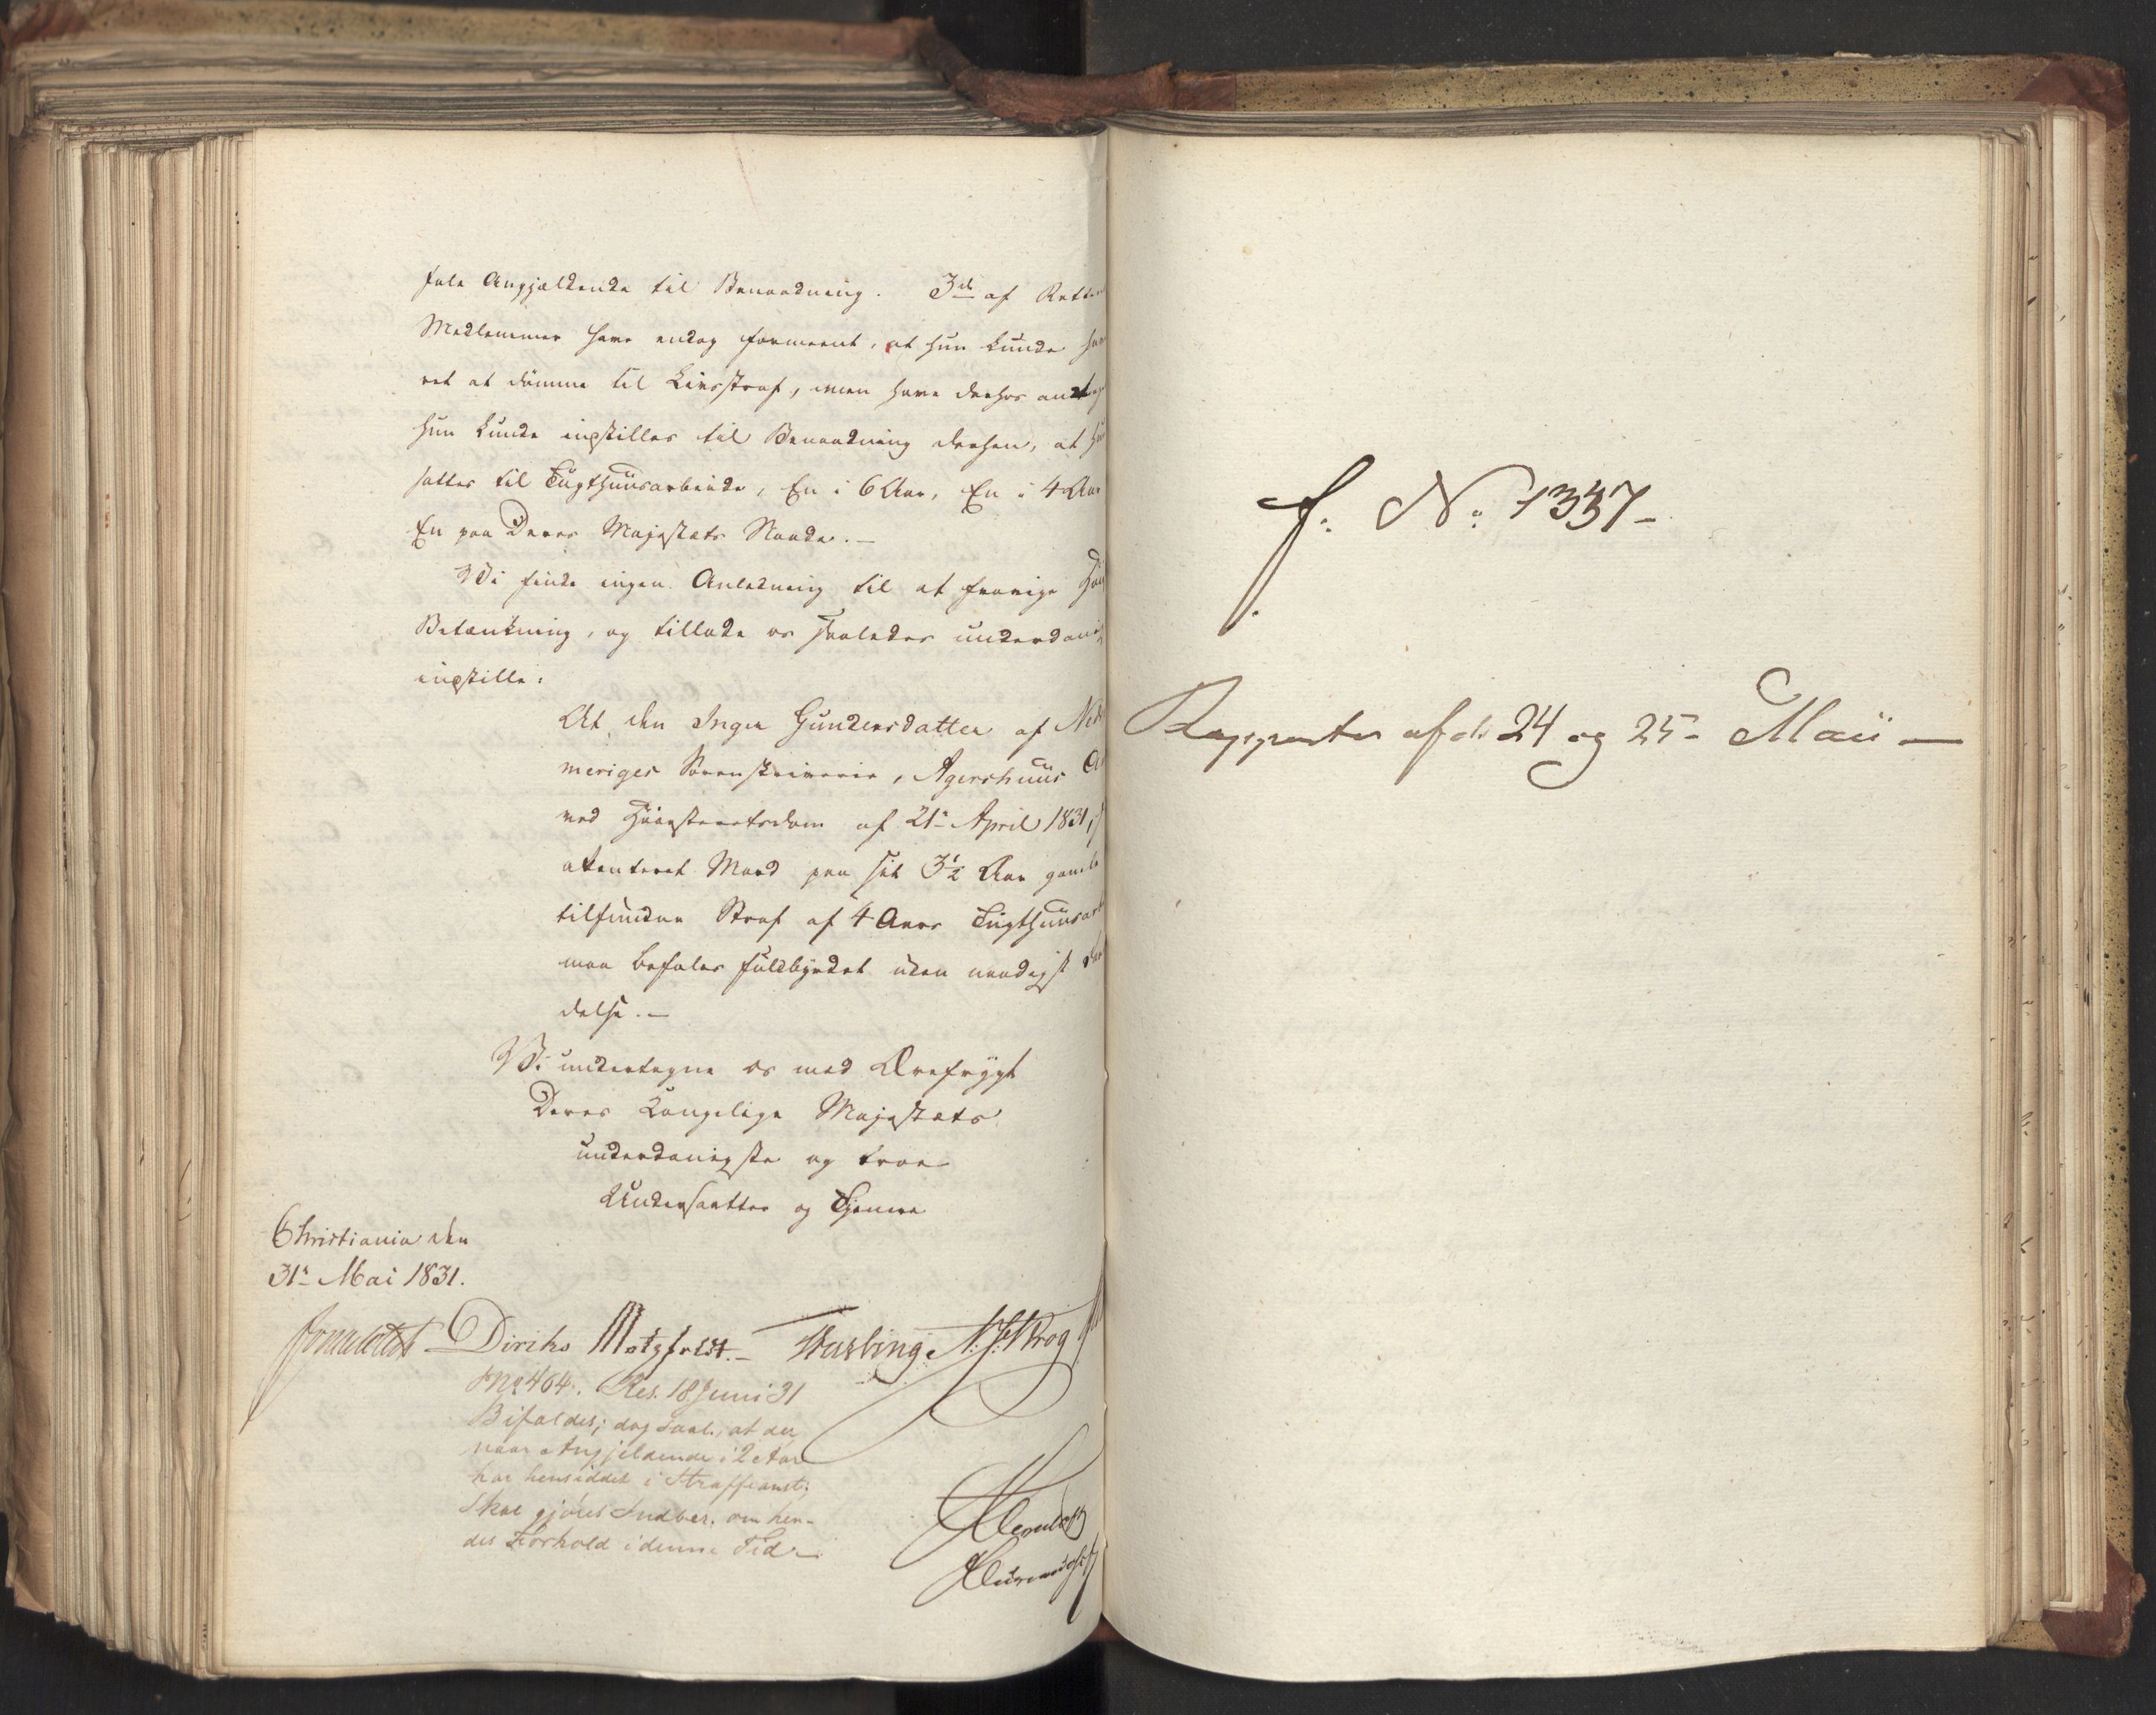 fale Angjældende til Benaadning. 3de af Retten
Medlemmer have endog formeent, at hun kunde
ret at dömme til Livsstraf, men have derhos
hun kunde indstilles til Benaadning derhen, at
sættes til Tugthuusarbeide, En i 6 Aar, En i 4 Aar
En paa Deres Majestæts Naade. —
Vi finde ingen Anledning til at fravige
Betænkning, og tillade os saaledes underdanig
indstille:
At den Inger Gundersdatter af
meriges Sorenskriverie, Agershuus
ved Höiesteretsdom af 21de April 1831,
attenteret Mord paa sit 3½ Aar gamle
tilfundne Straf af 4 Aars Tugthuus
maa befales fuldbyrdet uden naadigst
delse. —
Vi undertegne os med Ærefrygt
Deres Kongelige Majestæts
underdanigste og troe
Undersaatter og Tjenere
Christiania den
31te Mai 1831.
Diriks Motzfeldt. — Fasting. Krog
No 404. Res. 18 Juni 31
Bifaldes; dog saal., at der,
naar Angjeldende i 2 Aar
har hensiddet i Straffeanst;
skal gjöres Indber. om hen-
des Forhold i denne Tid —
f. No: 1337 —
Rapporter af d. 24 og 25 — Maii —